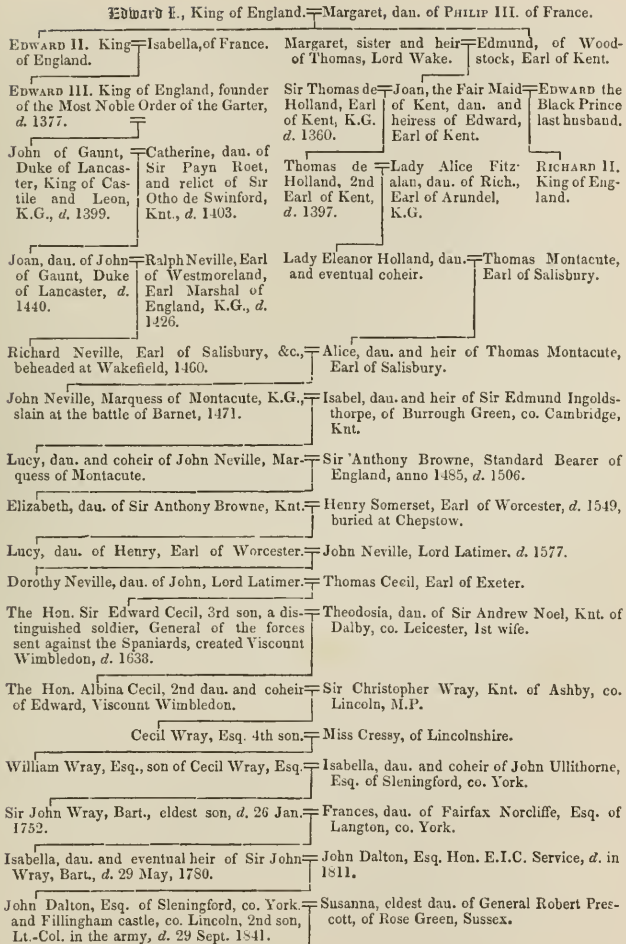 Edward I., King of England.=Margaret, dau. of PHILIP III. of France.
EDWARD II. King of England.=Isabella, of France.
Margaret, sister and heir of Thomas, Lord Wake.=Edmund, of Wood-
stock, Earl of Kent.
EDWARD III. King of England, founder
of the Most Noble Order of the Garter,
d. 1377.
Sir Thomas de
Holland, Earl
of Kent, K.G.
d. 1360.
Joan, the Fair Maid
of Kent, dau. and
heiress of Edward,
Earl of Kent.
EDWARD the
Black Prince
last husband.
John of Gaunt,
Duke of Lancas-
ter, King of Cas-
tile and Leon,
K.G., d. 1399.
Catherine, dau. of
Sir Payn Roet,
and relict of Sir
Otho de Swinford,
Knt., d. 1403.
Thomas de
Holland, 2nd
Earl of Kent,
d. 1397.
Lady Alice Fitz-
alan, dau. of Rich.,
Earl of Arundel,
K.G.
RICHARD II.
King of Eng-
land.
Joan, dau. of John
of Gaunt, Duke
of Lancaster, d.
1440.
Ralph Neville, Earl
of Westmoreland,
Earl Marshal of
England, K.G., d.
1426.
Lady Eleanor Holland, dau.
and eventual coheir.
Thomas Montacute,
Earl of Salisbury.
Richard Neville, Earl of Salisbury, &c.,
beheaded at Wakefield, 1460.
Alice, dau. and heir of Thomas Montacute,
Earl of Salisbury.
John Neville, Marquess of Montacute, K.G.,
slain at the battle of Barnet, 1471.
Isabel, dau. and heir of Sir Edmund Ingolds-
thorpe, of Burrough Green, co. Cambridge,
Knt.
Lucy, dau. and coheir of John Neville, Mar-
quess of Montacute.
Sir 'Anthony Browne, Standard Bearer of
England, anno 1485, d. 1506.
Elizabeth, dau. of Sir Anthony Browne, Knt.
Henry Somerset, Earl of Worcester, d. 1549,
buried at Chepstow.
Lucy, dau. of Henry, Earl of Worcester.=John Neville, Lord Latimer. d. 1577.
Dorothy Neville, dau. of John, Lord Latimer.=Thomas Cecil, Earl of Exeter.
The Hon. Sir Edward Cecil, 3rd son, a dis-
tinguished soldier, General of the forces
sent against the Spaniards, created Viscount
Wimbledon, d. 1638.
Theodosia, dau. of Sir Andrew Noel, Knt. of
Dalby, co. Leicester, 1st wife.
The Hon. Albina Cecil, 2nd dau. and coheir
of Edward, Viscount Wimbledon.
Sir Christopher Wray, Knt. of Ashby, co.
Lincoln, M.P.
Cecil Wray, Esq. 4th son.=Miss Cressy, of Lincolnshire.
William Wray, Esq., son of Cecil Wray, Esq.
Isabella, dau. and coheir of John Ullithorne,
Esq. of Sleningford, co. York.
Sir John Wray, Bart., eldest son, d. 26 Jan.
1752.
Frances, dau. of Fairfax Norcliffe, Esq. of
Langton, co. York.
Isabella, dau. and eventual heir of Sir John
Wray, Bart., d. 29 May, 1780.
John Dalton, Esq. Hon. E.I.C. Service, d. in
1811.
John Dalton, Esq. of Sleningford, co. York.
and Fillingham castle, co. Lincoln, 2nd son,
Lt.-Col. in the army, d. 29 Sept. 1841.
Susanna, eldest dau. of General Robert Pres-
cott, of Rose Green, Sussex.